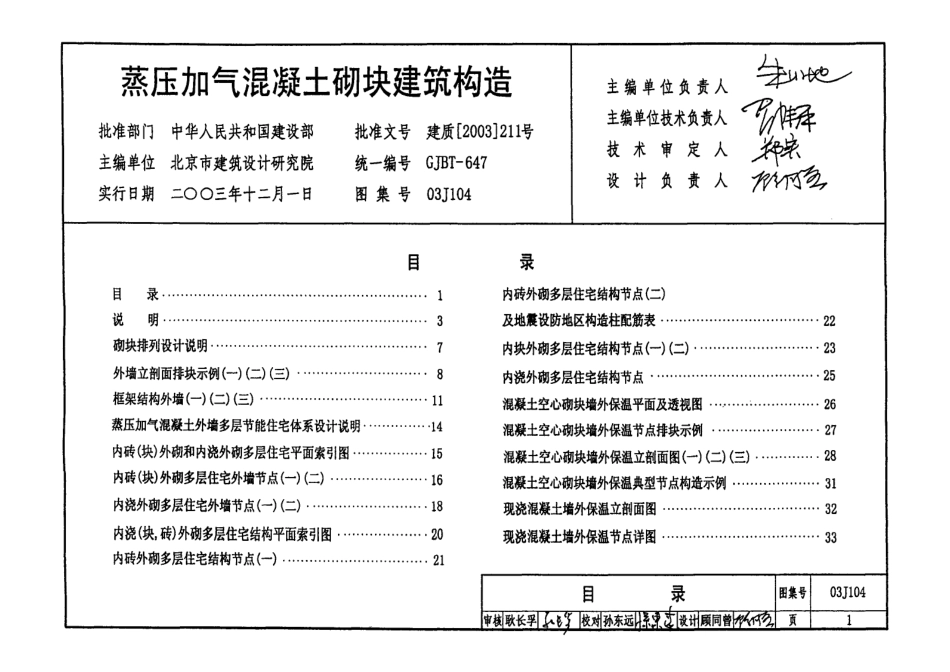 蒸压加气混凝土砌块建筑构造
批准部门 中华人民共和国建设部 批准文号 建质[2003]211号
主编单位 北京市建筑设计研究院 统一编号 GJBT-647
实行日期 二〇〇三年十二月一日 图集号 03J104
主编单位负责人
主编单位技术负责人
技术审定人
设计负责人
目 录
目 录 1
说 明 3
砌块排列设计说明 7
外墙立剖面排块示例(一)(二)(三) 8
框架结构外墙(一)(二)(三) 11
蒸压加气混凝土外墙多层节能住宅体系设计说明 14
内砖(块)外砌和内浇外砌多层住宅平面索引图 15
内砖(块)外砌多层住宅外墙节点(一)(二) 16
内浇外砌多层住宅外墙节点(一)(二) 18
内浇(块,砖)外砌多层住宅结构平面索引图 20
内砖外砌多层住宅结构节点(一) 21
内砖外砌多层住宅结构节点(二)
及地震设防地区构造柱配筋表 22
内块外砌多层住宅结构节点(一)(二) 23
内浇外砌多层住宅结构节点 25
混凝土空心砌块墙外保温平面及透视图 26
混凝土空心砌块墙外保温节点排块示例 27
混凝土空心砌块墙外保温立剖面图(一)(二)(三) 28
混凝土空心砌块墙外保温典型节点构造示例 31
现浇混凝土墙外保温立剖面图 32
现浇混凝土墙外保温节点详图 33
目 录 图集号 03J104
审核 耿长孚 校对 孙东远 设计 顾同曾 页 1